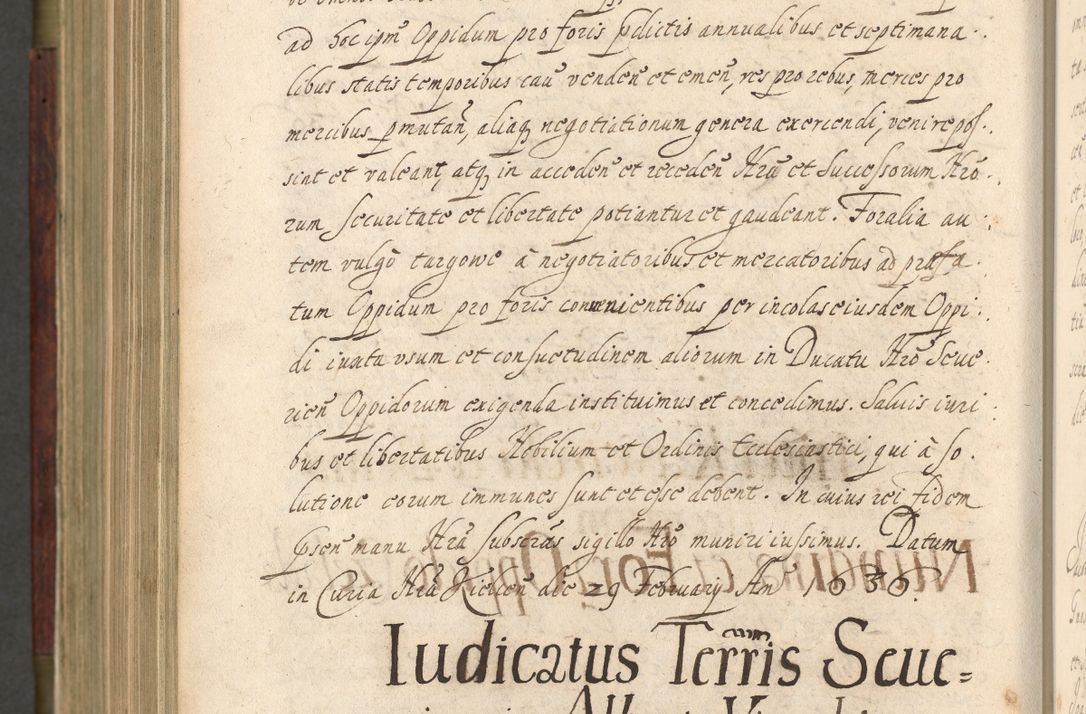 ad hoc ipm̃ Oppidum pro foris pdictis annualibus et septimana
libus statis temporibus cau̇ venden̄ et emen̄, res pro rebus, merces pro
mercibus pmutan̄, aliaq; negotiationum genera exercendi, venire pos
sint et valeant, atq; in acceden̄ et receden̄ Nr̃a et Successorum Nr̃o
rum securitate et libertate potiantur et gaudeant. Foralia au
tem vulgò targowe à negotiatoribus et mercatoribus ad præfa
tum Oppidum pro foris convenientibus per incolas eiusdem Oppi
di iuxta vsum et consuetudinem aliorum in Ducatu Nr̃o Seue
rien̄ Oppidorum exigenda instituimus et concedimus. Saluis iuri
bus et libertatibus Nobilium et Ordinis Ecclesiastici, qui à so
lutione eorum immunes sunt et esse debent. In cuius rei fidem
p̃sen̄ manu Nr̃a subscrás sigillo Nr̃o muniri iussimus. Datum
in Curia Nr̃a Kielcen̄ die 29 February An̄ 1636.
Iudicatus Terr̃is Seue=